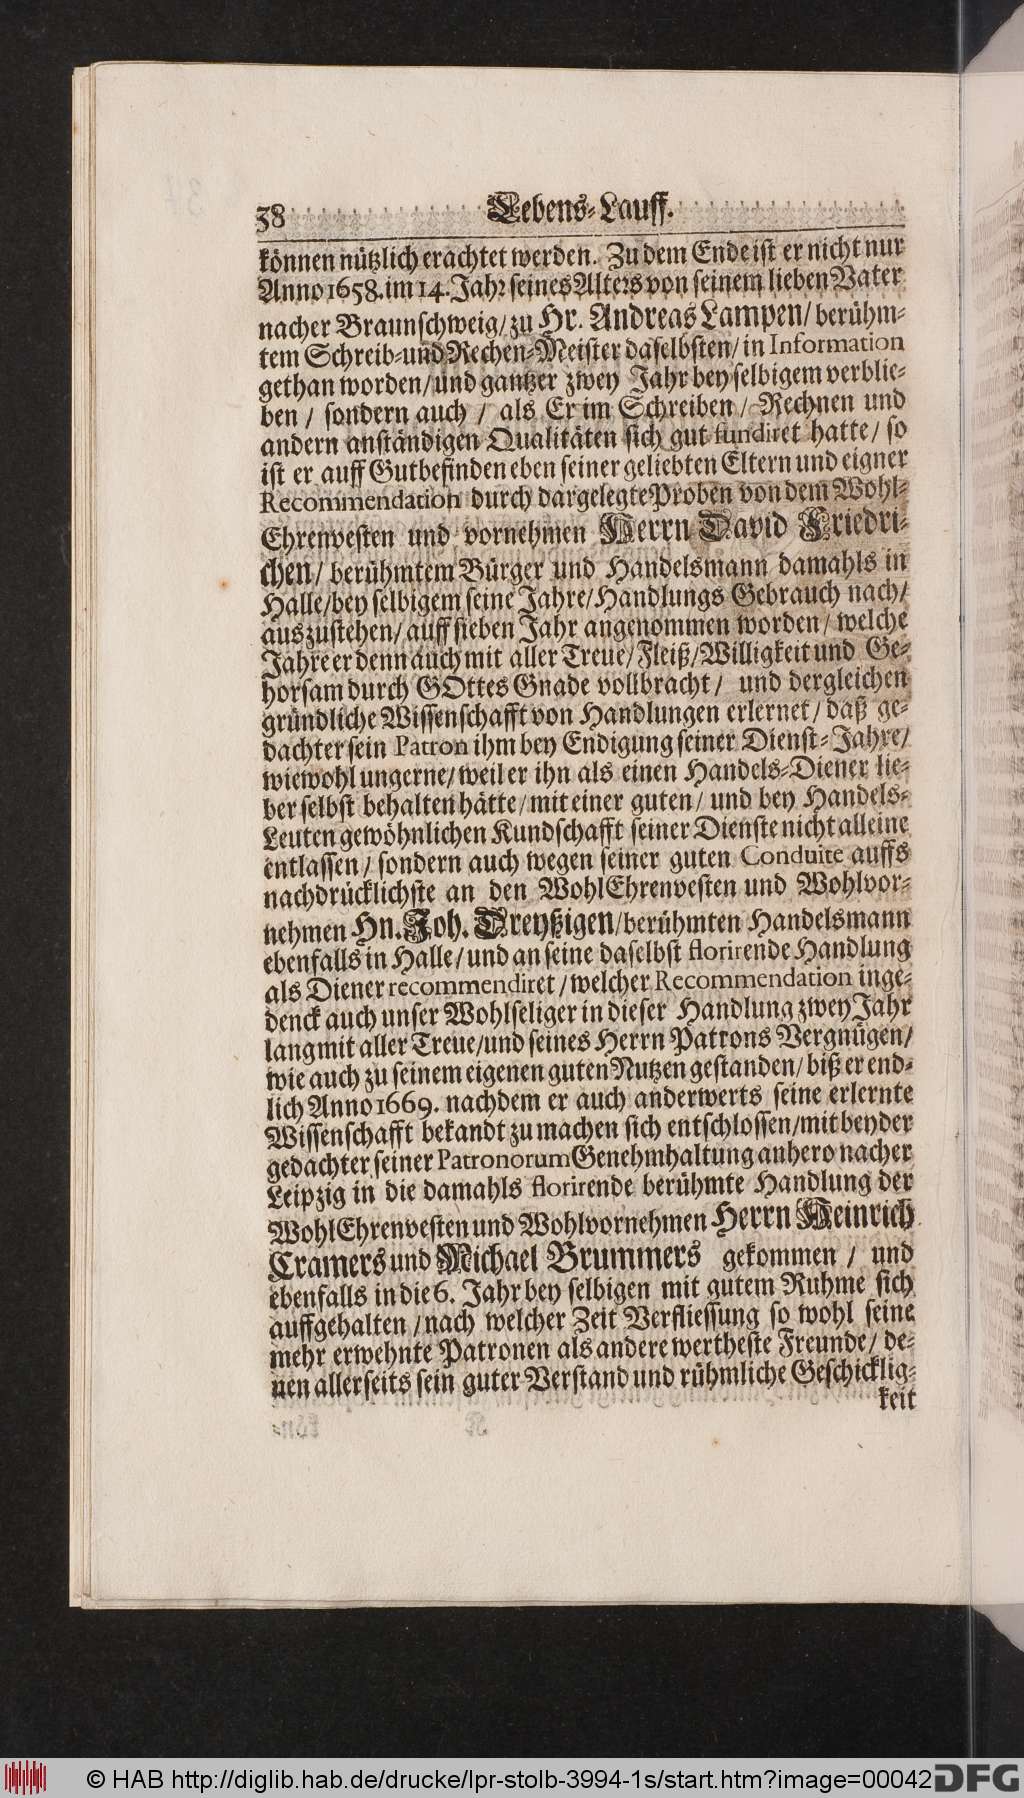 38 Lebens-Lauff.
können nützlich erachtet werden. Zu dem Ende ist er nicht nur
Anno 1658. im 14. Jahr seines Alters von seinem lieben Vater
nacher Braunschweig/ zu Hr. Andreas Lampen/ berühm-
tem Schreib- und Rechen-Meister daselbsten/ in Information
gethan worden/ und gantzer zwey Jahr bey selbigem verblie-
ben / sondern auch / als Er im Schreiben / Rechnen und
andern anständigen Qualitäten sich gut fundiret hatte/ so
ist er auff Gutbefinden eben seiner geliebten Eltern und eigner
Recommendation durch dargelegte Proben von dem Wohl-
Ehrenvesten und vornehmen Herrn David Friedri-
chen/ berühmtem Bürger und Handelsmann damahls in
Halle/ bey selbigem seine Jahre/ Handlungs Gebrauch nach/
auszustehen/ auff sieben Jahr angenommen worden/ welche
Jahre er denn auch mit aller Treue/ Fleiß/ Willigkeit und Ge-
horsam durch GOttes Gnade vollbracht/ und dergleichen
gründliche Wissenschafft von Handlungen erlernet/ daß ge-
dachter sein Patron ihm bey Endigung seiner Dienst-Jahre/
wiewohl ungerne/ weil er ihn als einen Handels-Diener lie-
ber selbst behalten hätte/ mit einer guten/ und bey Handels-
Leuten gewöhnlichen Kundschafft seiner Dienste nicht alleine
entlassen/ sondern auch wegen seiner guten Conduite auffs
nachdrücklichste an den WohlEhrenvesten und Wohlvor-
nehmen Hn. Joh. Dreyßigen/ berühmten Handelsmann
ebenfalls in Halle/ und an seine daselbst florirende Handlung
als Diener recommendiret/ welcher Recommendation inge-
denck auch unser Wohlseliger in dieser Handlung zwey Jahr
lang mit aller Treue/ und seines Herrn Patrons Vergnügen/
wie auch zu seinem eigenen guten Nutzen gestanden/ biß er end-
lich Anno 1669. nachdem er auch anderwerts seine erlernte
Wissenschafft bekandt zu machen sich entschlossen/ mit beyder
gedachter seiner Patronorum Genehmhaltung anhero nacher
Leipzig in die damahls florirende berühmte Handlung der
WohlEhrenvesten und Wohlvornehmen Herrn Heinrich
Cramers und Michael Brummers gekommen / und
ebenfalls in die 6. Jahr bey selbigen mit gutem Ruhme sich
auffgehalten / nach welcher Zeit Verfliessung so wohl seine
mehr erwehnte Patronen als andere wertheste Freunde/ de-
nen allerseits sein guter Verstand und rühmliche Geschicklig-
keit
© HAB http://diglib.hab.de/drucke/lpr-stolb-3994-1s/start.htm?image=00042
DFG